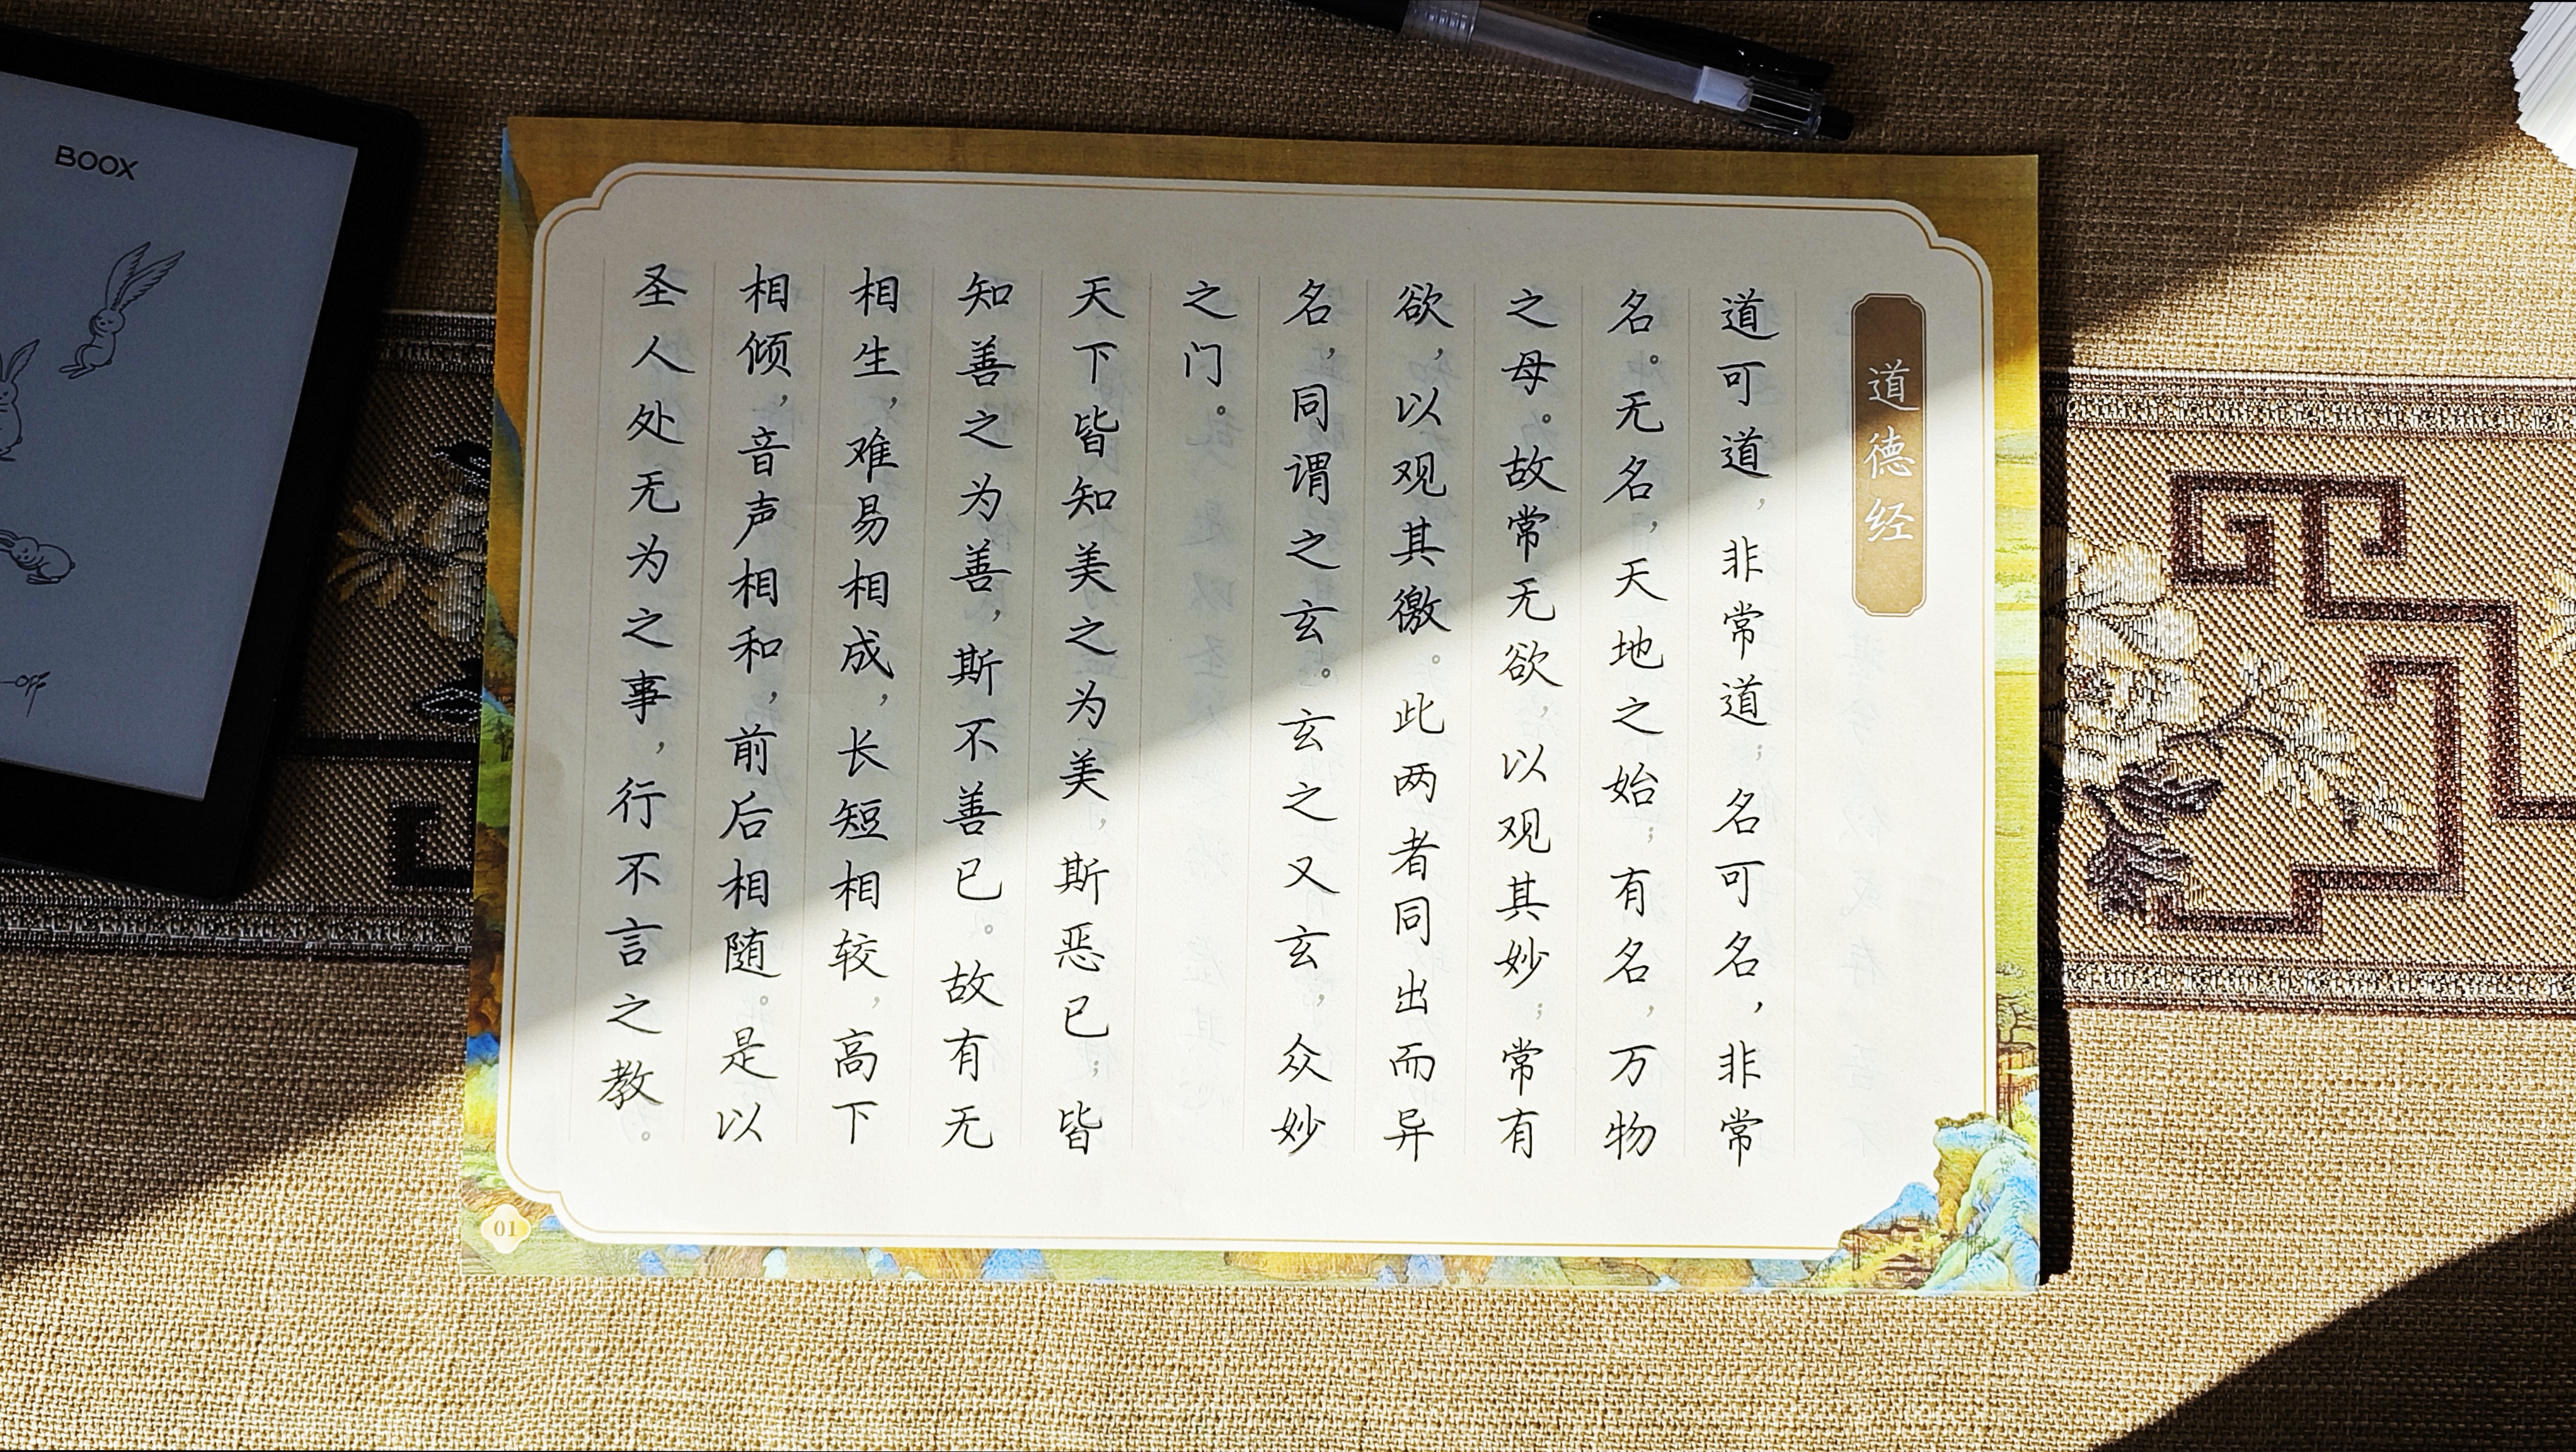 道德经
道可道，非常道；名可名，非常
名。无名，天地之始；有名，万物
之母。故常无欲，以观其妙；常有
欲，以观其徼。此两者同出而异
名，同谓之玄。玄之又玄，众妙
之门。
天下皆知美之为美，斯恶已；皆
知善之为善，斯不善已。故有无
相生，难易相成，长短相较，高下
相倾，音声相和，前后相随。是以
圣人处无为之事，行不言之教。
01
BOOX